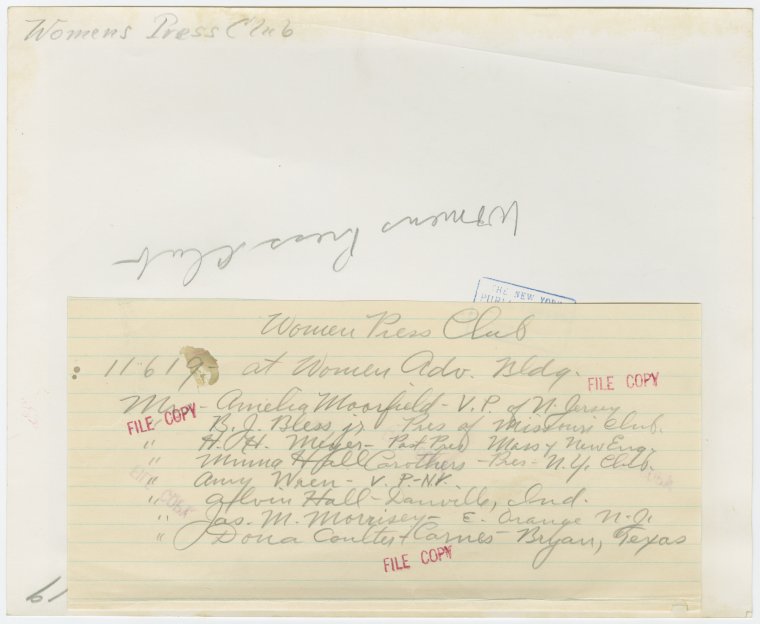 Womens Press Club
Womens Press Club
THE NEW YORK
Women Press Club
11619- at Women Adv. Bldg.
FILE COPY
Mrs - Amelia Moorfield - V.P. of N. Jersey
FILE COPY
" B. J. Bless jr Pres of Missouri Club.
" H. H. Meyer - Past Pres Mass & New Eng.
" Minna Hall Carothers - Pres - N.Y. Club.
" Amy Wren - V.P - N.Y.
" Alvin Hall - Danville, Ind.
" Jas. M. Morrisey - E. Orange N.J.
" Dona Coulter Carnes - Bryan, Texas
FILE COPY
FILE COPY
19